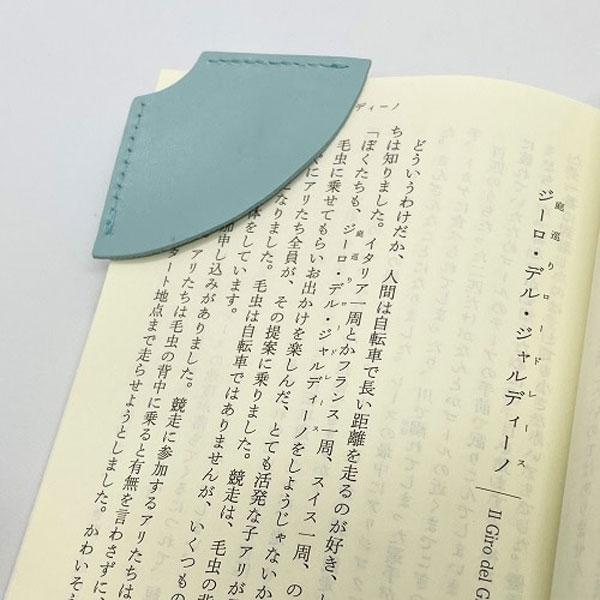 ディーノ
庭巡りロードレース
ジーロ・デル・ジャルディーノ | Il Giro del G
どういうわけだか、人間は自転車で長い距離を走るのが好き、
ちは知りました。イタリア一周とかフランス一周、スイス一周、の
「ぼくたちも、ジーロ・デル・ジャルディーノをしようじゃないか
庭巡りロードレース
毛虫に乗せてもらいお出かけを楽しんだ、とても活発な子アリが
にアリたち全員が、その提案に乗りました。競走は、毛虫の背
なりました。毛虫は自転車ではありませんが、いくつもの
体をしています。
加申し込みがありました。競走に参加するアリたちは
アリたちは毛虫の背中に乗ると有無を言わさずに、
タート地点まで走らせようとしました。かわいそ